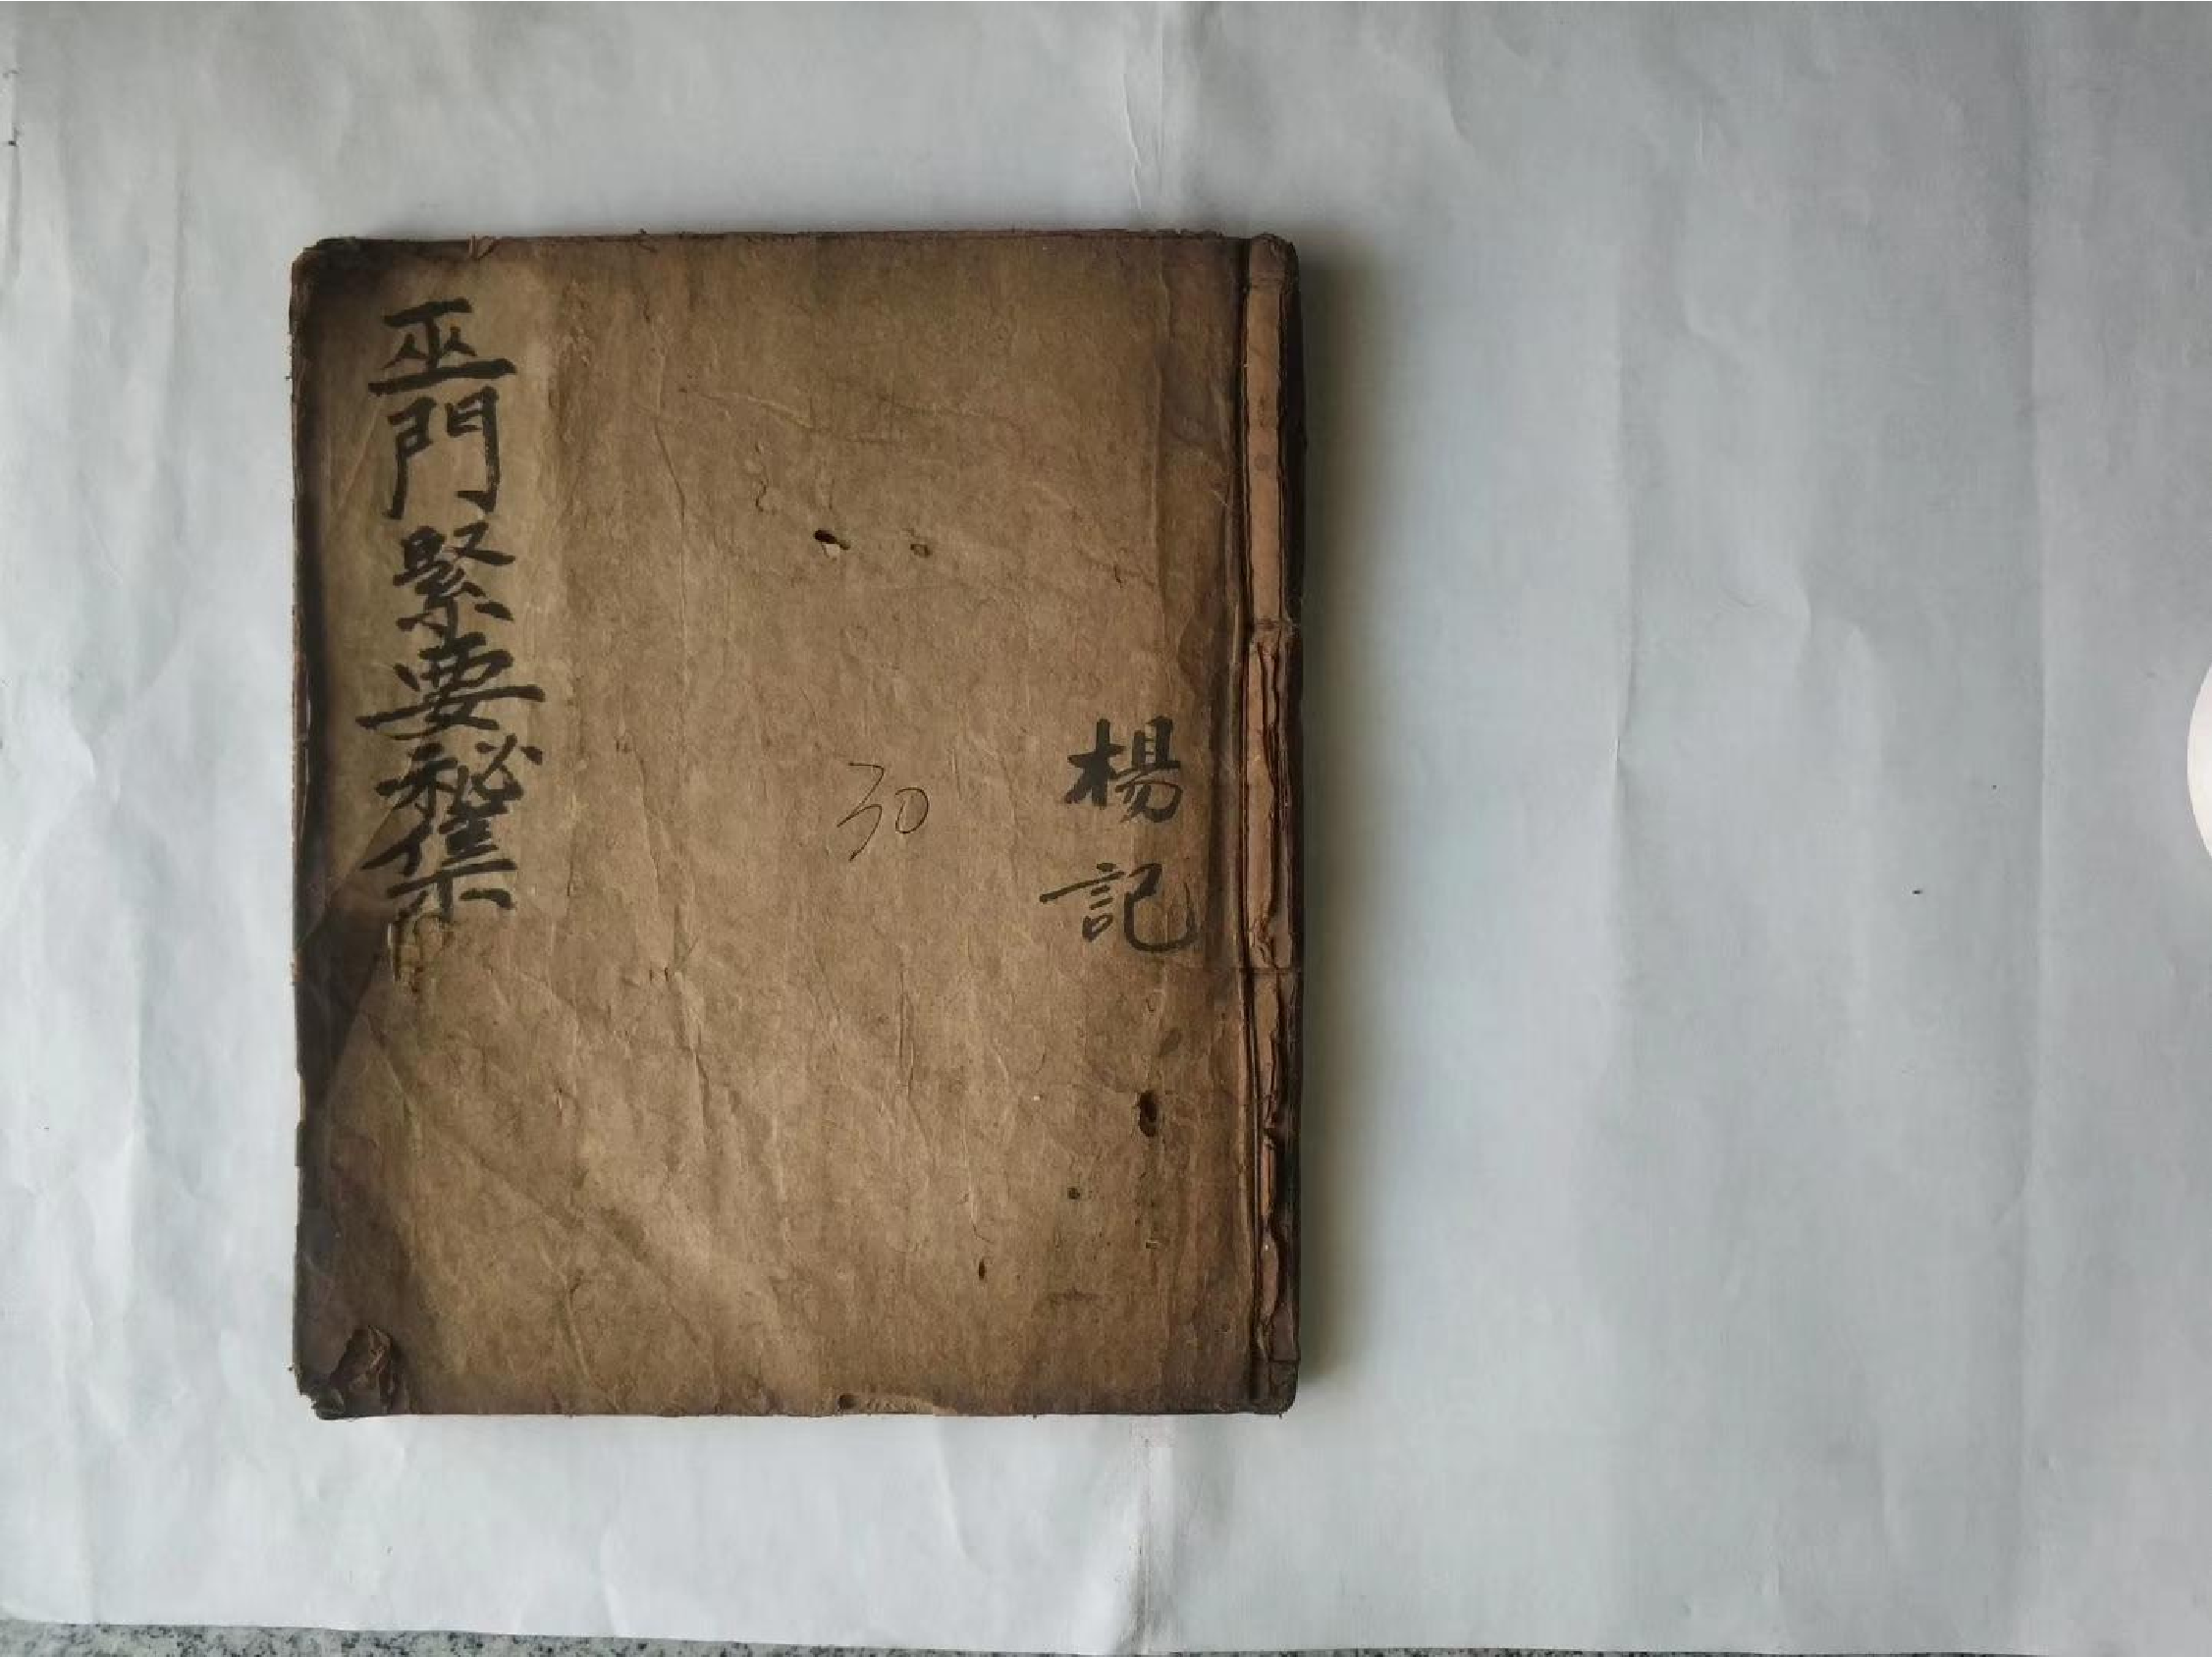 楊記
30
巫門緊要秘集